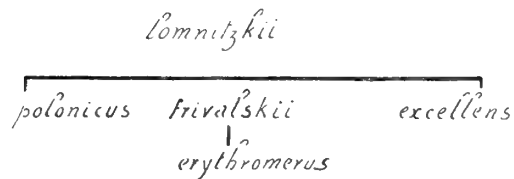 lomnitzkii
polonicus frivalskii excellens
erythromerus